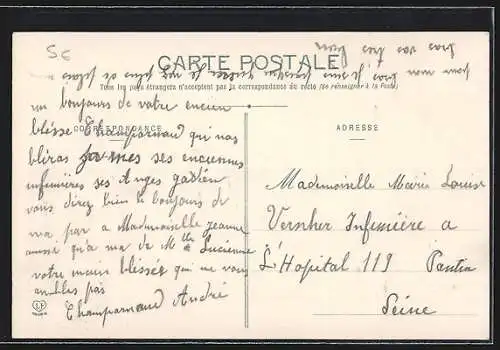 5€
CARTE POSTALE
Tous les pays étrangers n'acceptent pas la correspondance au recto (Se renseigner à la Poste)
CORRESPONDANCE
ADRESSE
un bonjours de votre encien
blésse Champarnaud qui nas
bliras james ses enciennes
infemières ses Anges gadien
vous direz bien le bonjours de
ma par a Mademoiselle jeanne
aussé qu'a ma de Mlle Lucienne
votre main blessée qui ne vous
oublies pas
Champarnaud André
Mademoiselle Marie Louise
Vernher Infemière a
L'Hopital 119 Pantin
Seine